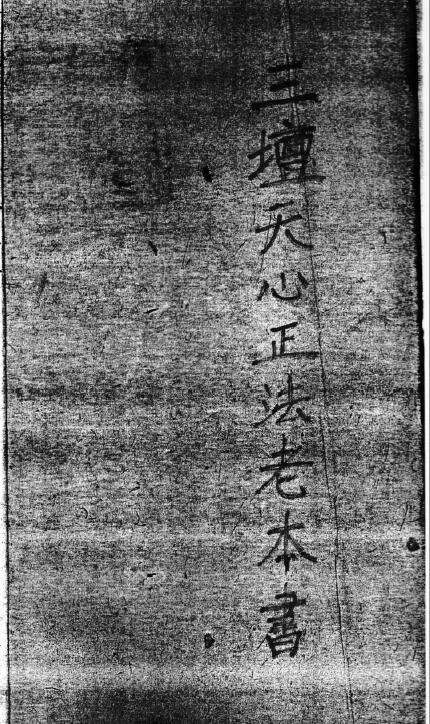 三壇天心正法老本書